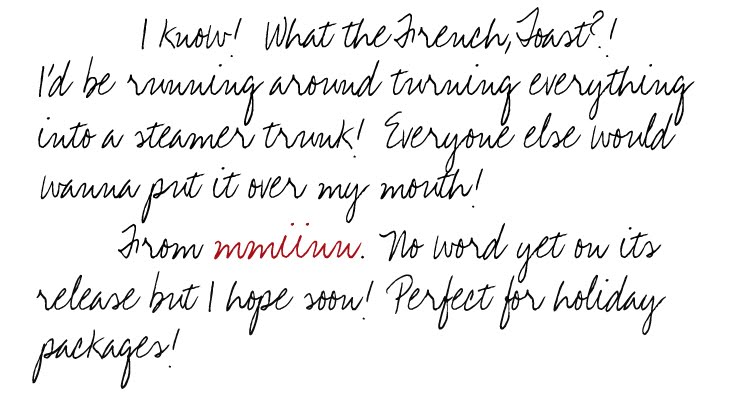 I know! What the French, Toast?!
I'd be running around turning everything
into a steamer trunk! Everyone else would
wanna put it over my mouth!
From mmiinn. No word yet on its
release but I hope soon! Perfect for holiday
packages!